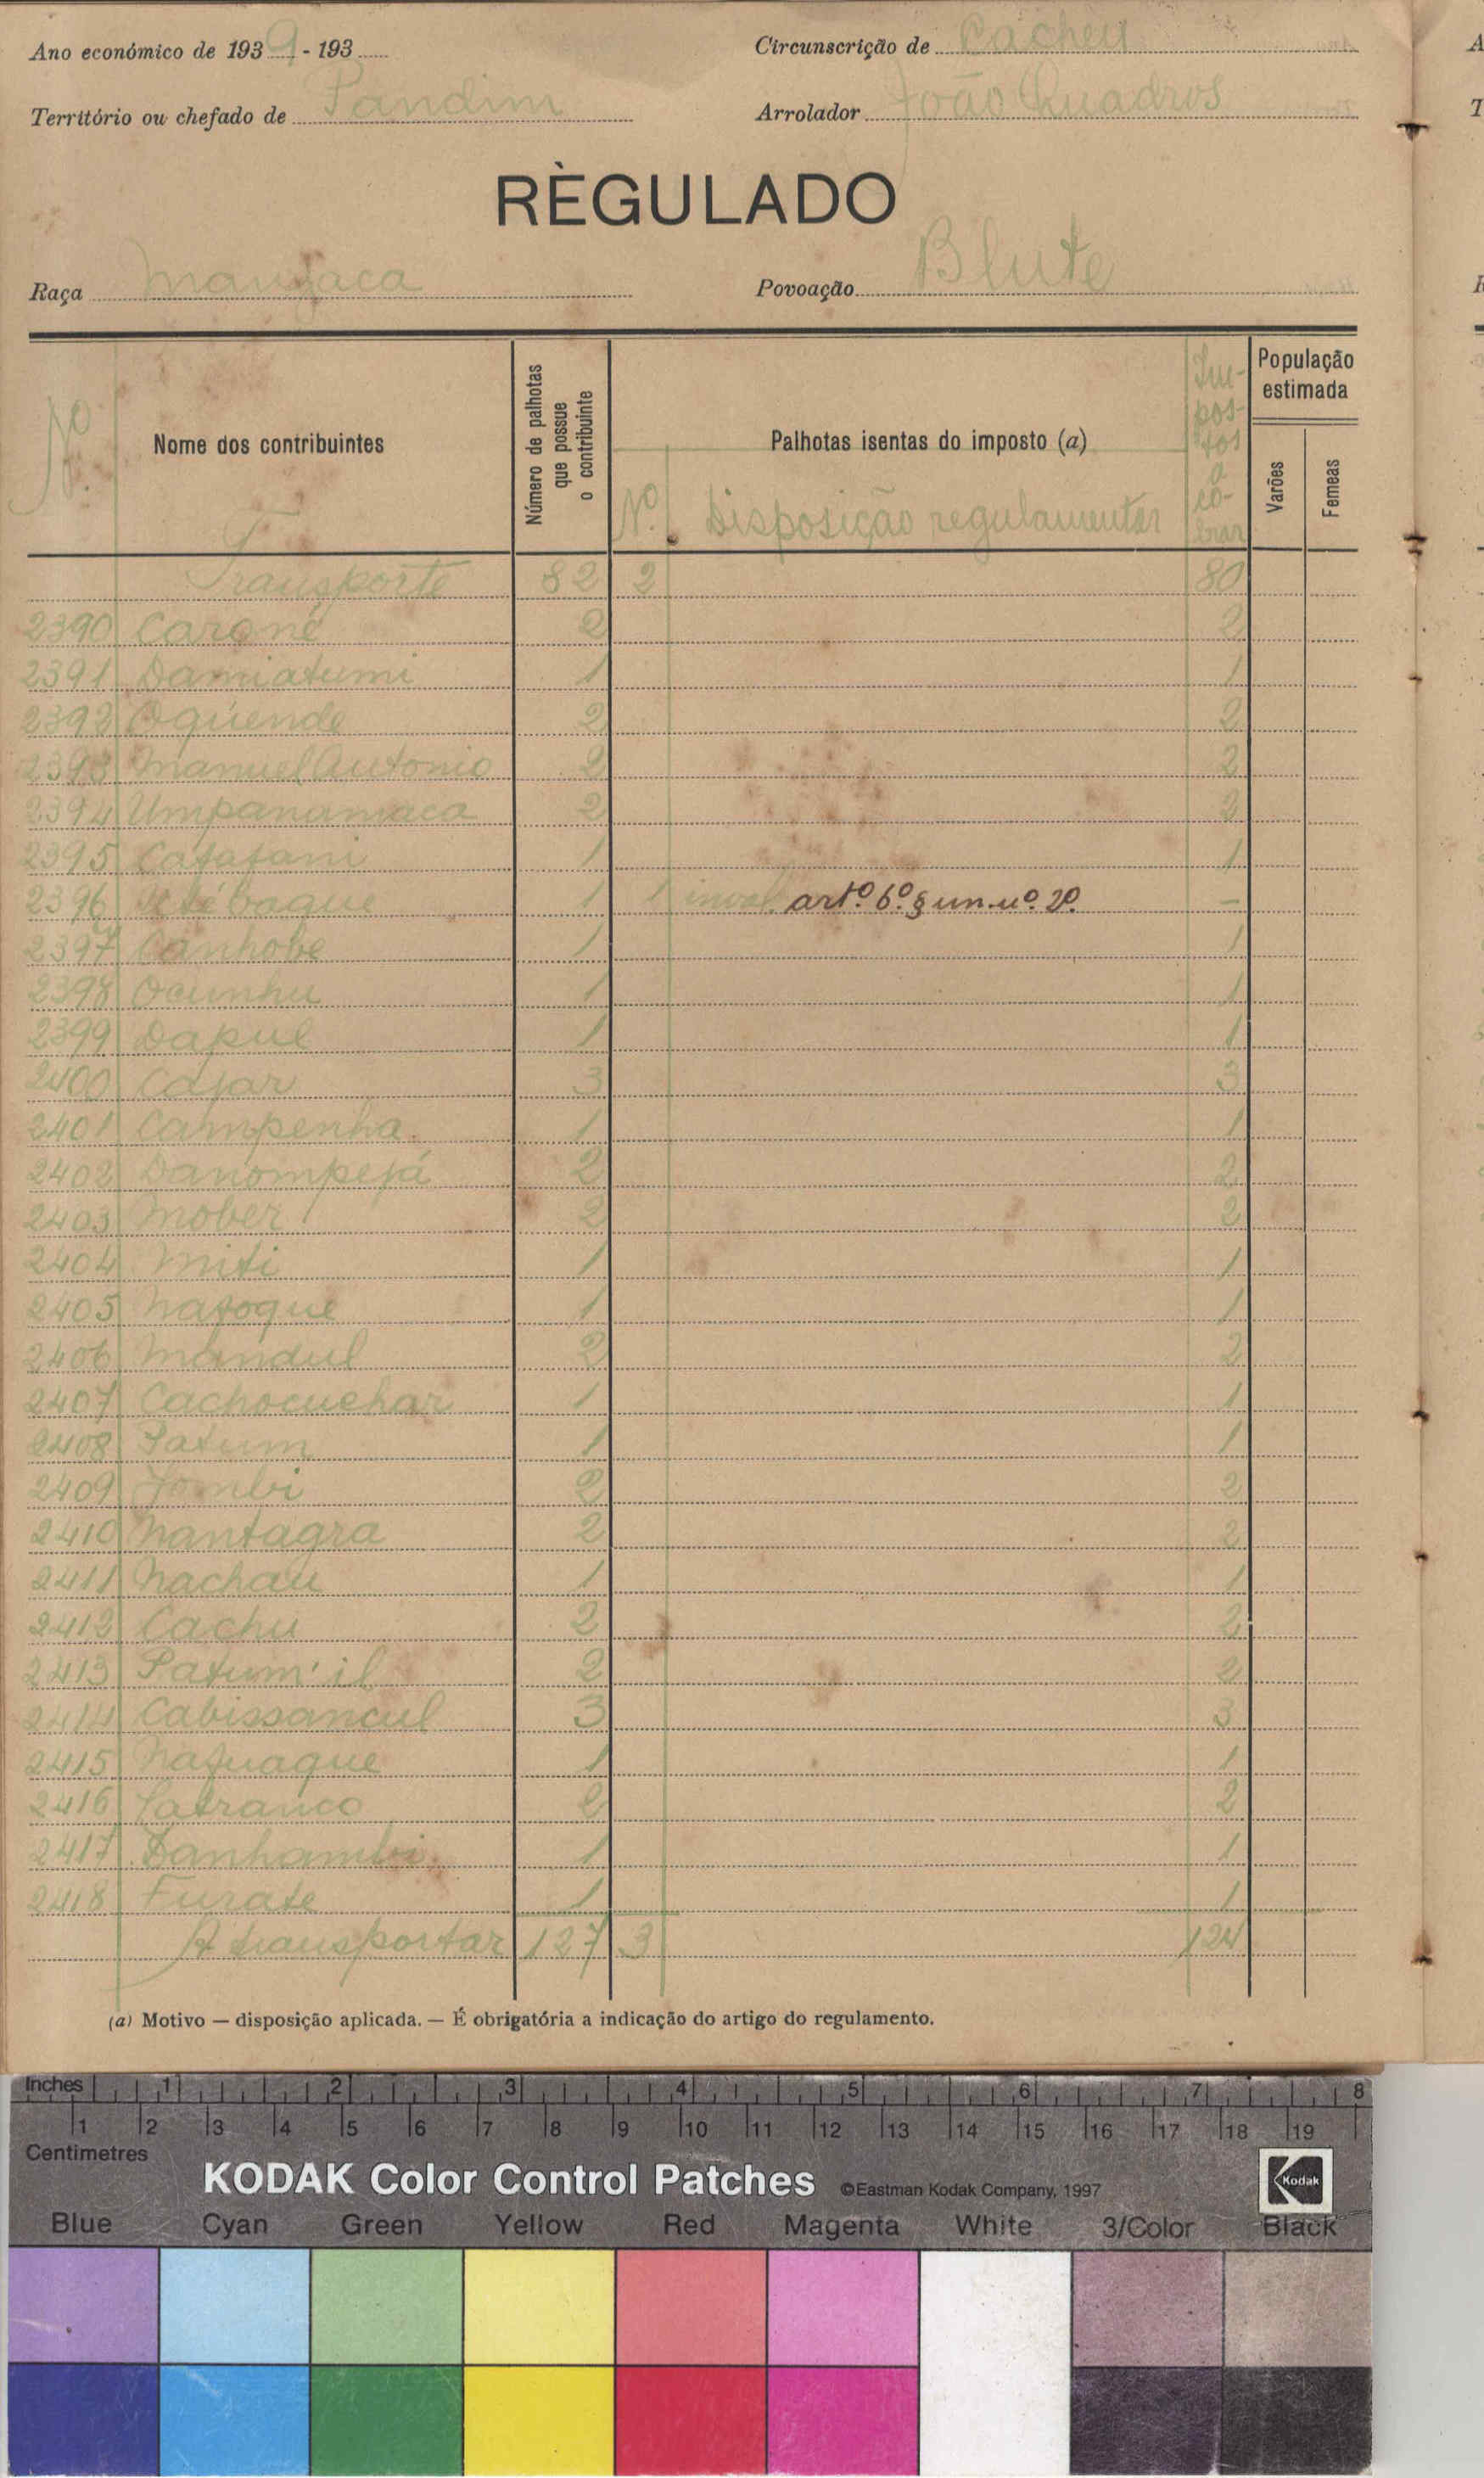 Ano económico de 1939 - 193
Circunscrição de Cacheu
Território ou chefado de Pandim
Arrolador João Quadros
RÈGULADO
Raça Manjaca
Povoação Blute
Nº
Nome dos contribuintes
Número de palhotas que possue o contribuinte
Palhotas isentas do imposto (a)
Nº. Disposição regulamentar
Impostos a cobrar
População estimada
Varões
Femeas
Transporte 82 2 80
2390 Caroné 2 2
2391 Damiatumi 1 1
2392 Oquende 2 2
2393 Manuel Antonio 2 2
2394 Umpanamaca 2 2
2395 Catatani 1 1
2396 1 1 inval. artº. 6º. § un. nº. 2º. –
2397 Canhobe 1 1
2398 Ocunhu 1 1
2399 Dapul 1 1
2400 Cajar 3 3
2401 Campenha 1 1
2402 Danompejá 2 2
2403 Mober 2 2
2404 Miti 1 1
2405 Natoque 1 1
2406 Mandul 2 2
2407 Cachocuchar 1 1
2408 Patum 1 1
2409 Jombi 2 2
2410 Nantagra 2 2
2411 Nachau 1 1
2412 Cachu 2 2
2413 Patum'il 2 2
2414 Cabissancul 3 3
2415 Nafuaque 1 1
2416 2 2
2417 Danhambi 1 1
2418 Furate 1 1
A transportar 127 3 124
(a) Motivo — disposição aplicada. — É obrigatória a indicação do artigo do regulamento.
Inches 1 2 3 4 5 6 7 8
1 2 3 4 5 6 7 8 9 10 11 12 13 14 15 16 17 18 19
Centimetres
KODAK Color Control Patches ©Eastman Kodak Company, 1997 Kodak
Blue Cyan Green Yellow Red Magenta White 3/Color Black